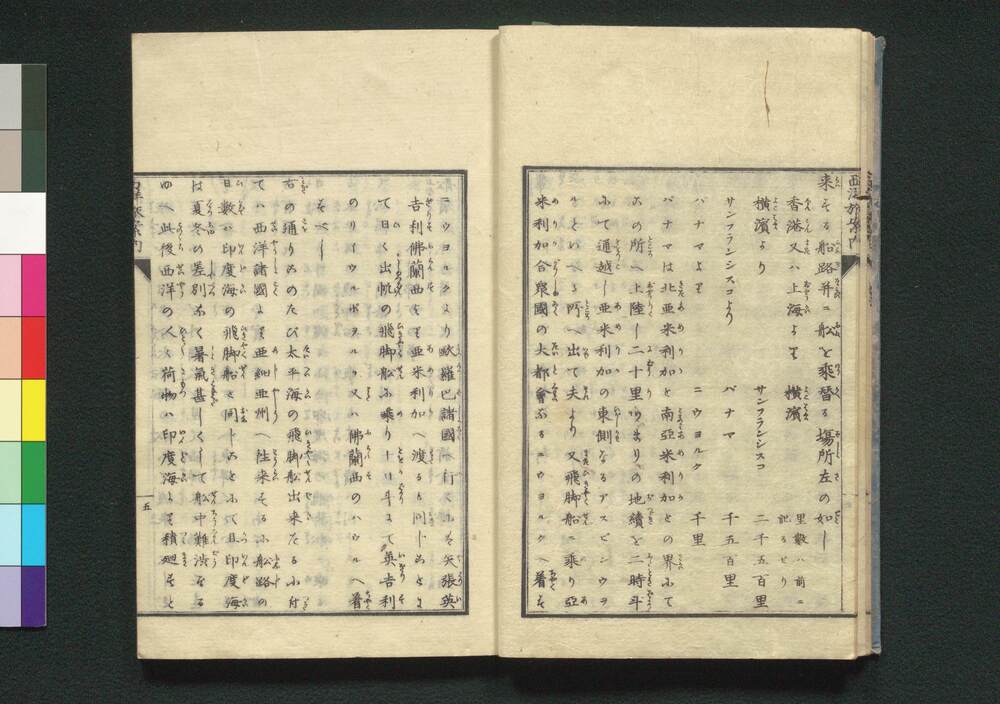 来する船路并ニ船を乗替る場所左の如し
香港又ハ上海より 横濱 里數ハ前ニ記るせり
横濱より サンフランシスコ 二千五百里
サンフランシスコより パナマ 千五百里
パナマより ニウヨルク 千里
パナマは北亜米利加と南亞米利加との界ふて
この所へ上陸し二十里の地續を二時斗
ふて通越し亜米利加の東側なるアスピンウヲ
ルといへる所へ出て夫より又飛脚船ニ乗り亞
米利加合衆國の大都會なるニウヨルクへ着す
ニウヨルクより歐羅巴諸國へ行くふも矢張英
吉利佛蘭西より亜米利加へ渡ると同しことに
て日々出帆の飛脚舩ふ乗り十日斗にて英吉利
のリイウルポヲルク又ハ佛蘭西のハウルへ着
すべし
右の通りこのたび太平海の飛脚舩出来たるふ付
てハ西洋諸國より亜細亜州へ往来するふ船路の
日數ハ印度海の飛脚船と同しことふて且印度海
は夏冬の差別なく暑氣甚しくして舩中難渋する
ゆへ此後西洋の人々荷物ハ印度海より積廻すと
西洋旅案内
五